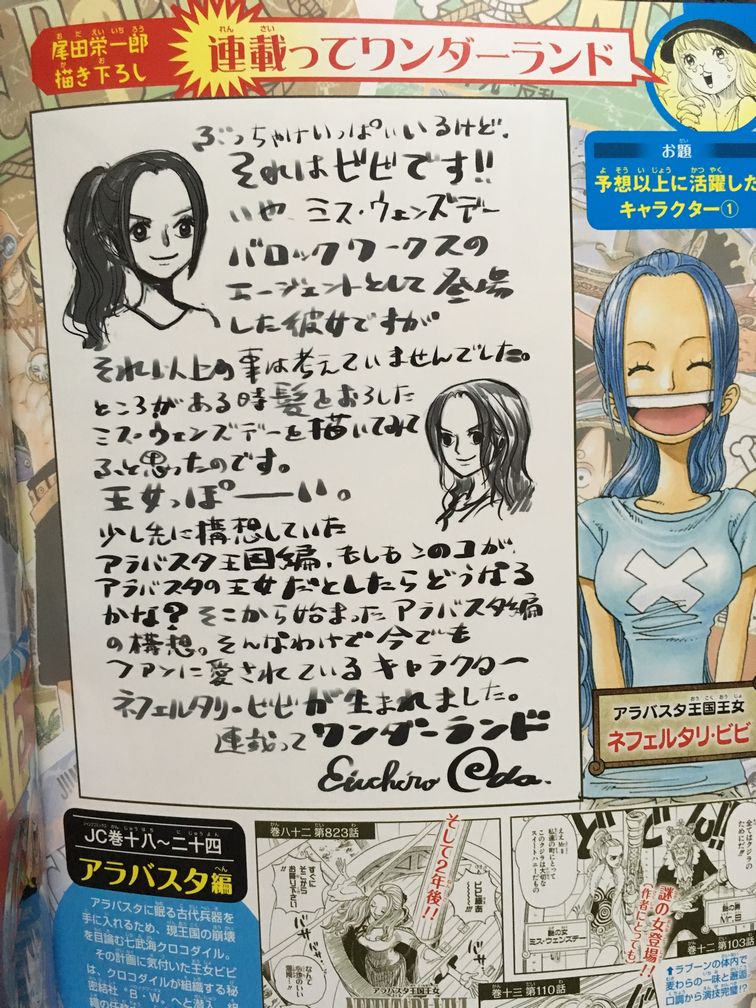 尾田栄一郎
描き下ろし
連載ってワンダーランド
お題
予想以上に活躍した
キャラクター①
ぶっちゃけいっぱいいるけど、
それはビビです!!
いや、ミス・ウェンズデー
バロックワークスの
エージェントとして登場
した彼女ですが
それ以上の事は考えていませんでした。
ところがある時髪をおろした
ミス・ウェンズデーを描いてみて
ふと思ったのです。
王女っぽーい。
少し先に構想していた
アラバスタ王国編、もしもこのコが、
アラバスタの王女だとしたらどうなる
かな?そこから始まったアラバスタ編
の構想。そんなわけで今でも
ファンに愛されているキャラクター
ネフェルタリ・ビビが生まれました。
連載ってワンダーランド
Eiichiro Oda.
アラバスタ王国王女
ネフェルタリ・ビビ
JC巻十八〜二十四
アラバスタ編
アラバスタに眠る古代兵器を
手に入れるため、現王国の崩壊
を目論む七武海クロコダイル。
その計画に気付いた王女ビビ
は、クロコダイルが組織する秘
密結社"B・W"へと潜入。組
巻八十二 第823話
そして2年後!!
アラバスタ王国王女
謎の女登場!!
(作者にとっても)
謎の女
ミス・ウェンズデー
巻十二 第103話
巻十三 第110話
↑ラブーンの体内で
麦わらの一味と邂逅
口調から演技完璧!?